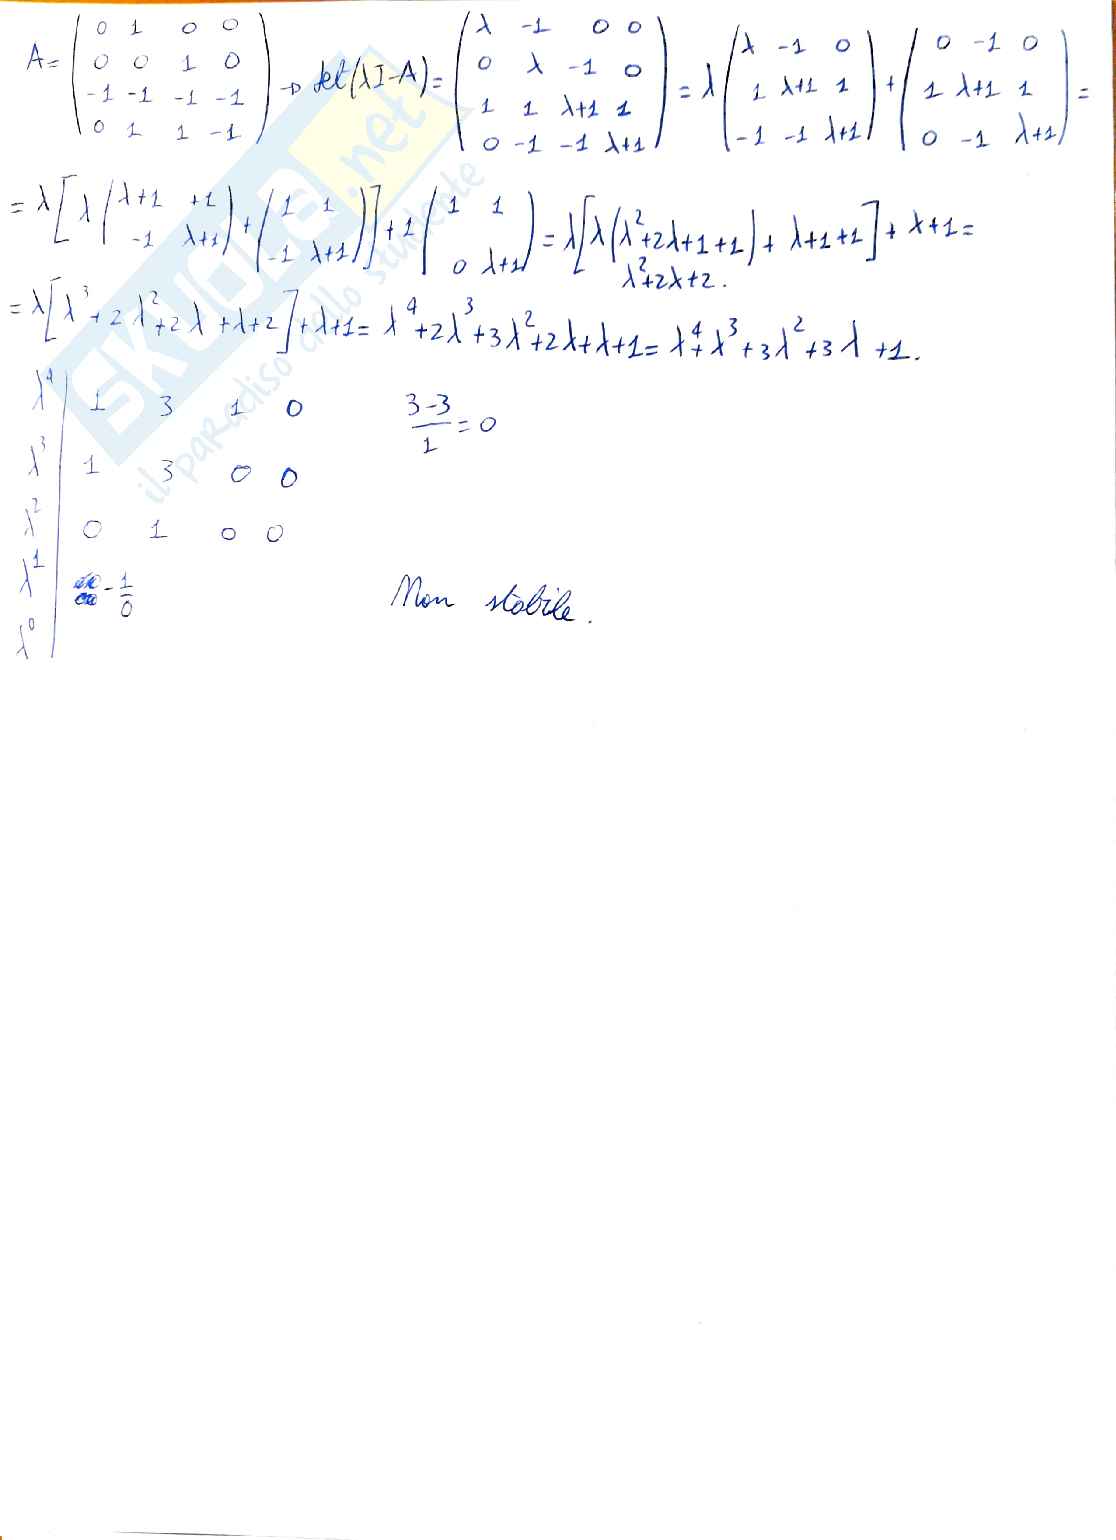 A = ( 0 1 0 0 ; 0 0 1 0 ; -1 -1 -1 -1 ; 0 1 1 -1 ) → det(λI-A) = ( λ -1 0 0 ; 0 λ -1 0 ; 1 1 λ+1 1 ; 0 -1 -1 λ+1 ) = λ ( λ -1 0 ; 1 λ+1 1 ; -1 -1 λ+1 ) + ( 0 -1 0 ; 1 λ+1 1 ; 0 -1 λ+1 ) =
= λ [ λ ( λ+1 +1 ; -1 λ+1 ) + ( 1 1 ; -1 λ+1 ) ] + 1 ( 1 1 ; 0 λ+1 ) = λ [ λ (λ²+2λ+1+1) + λ+1+1 ] + λ+1 =
λ²+2λ+2.
= λ [ λ³+2λ²+2λ+λ+2 ] + λ+1 = λ⁴+2λ³+3λ²+2λ+λ+1 = λ⁴+λ³+3λ²+3λ+1.
λ⁴ | 1 3 1 0 (3-3)/1 = 0
λ³ | 1 3 0 0
λ² | 0 1 0 0
λ¹ | - 1/0 Non stabile.
λ⁰ |
SKUOLA.net
il paradiso dello studente